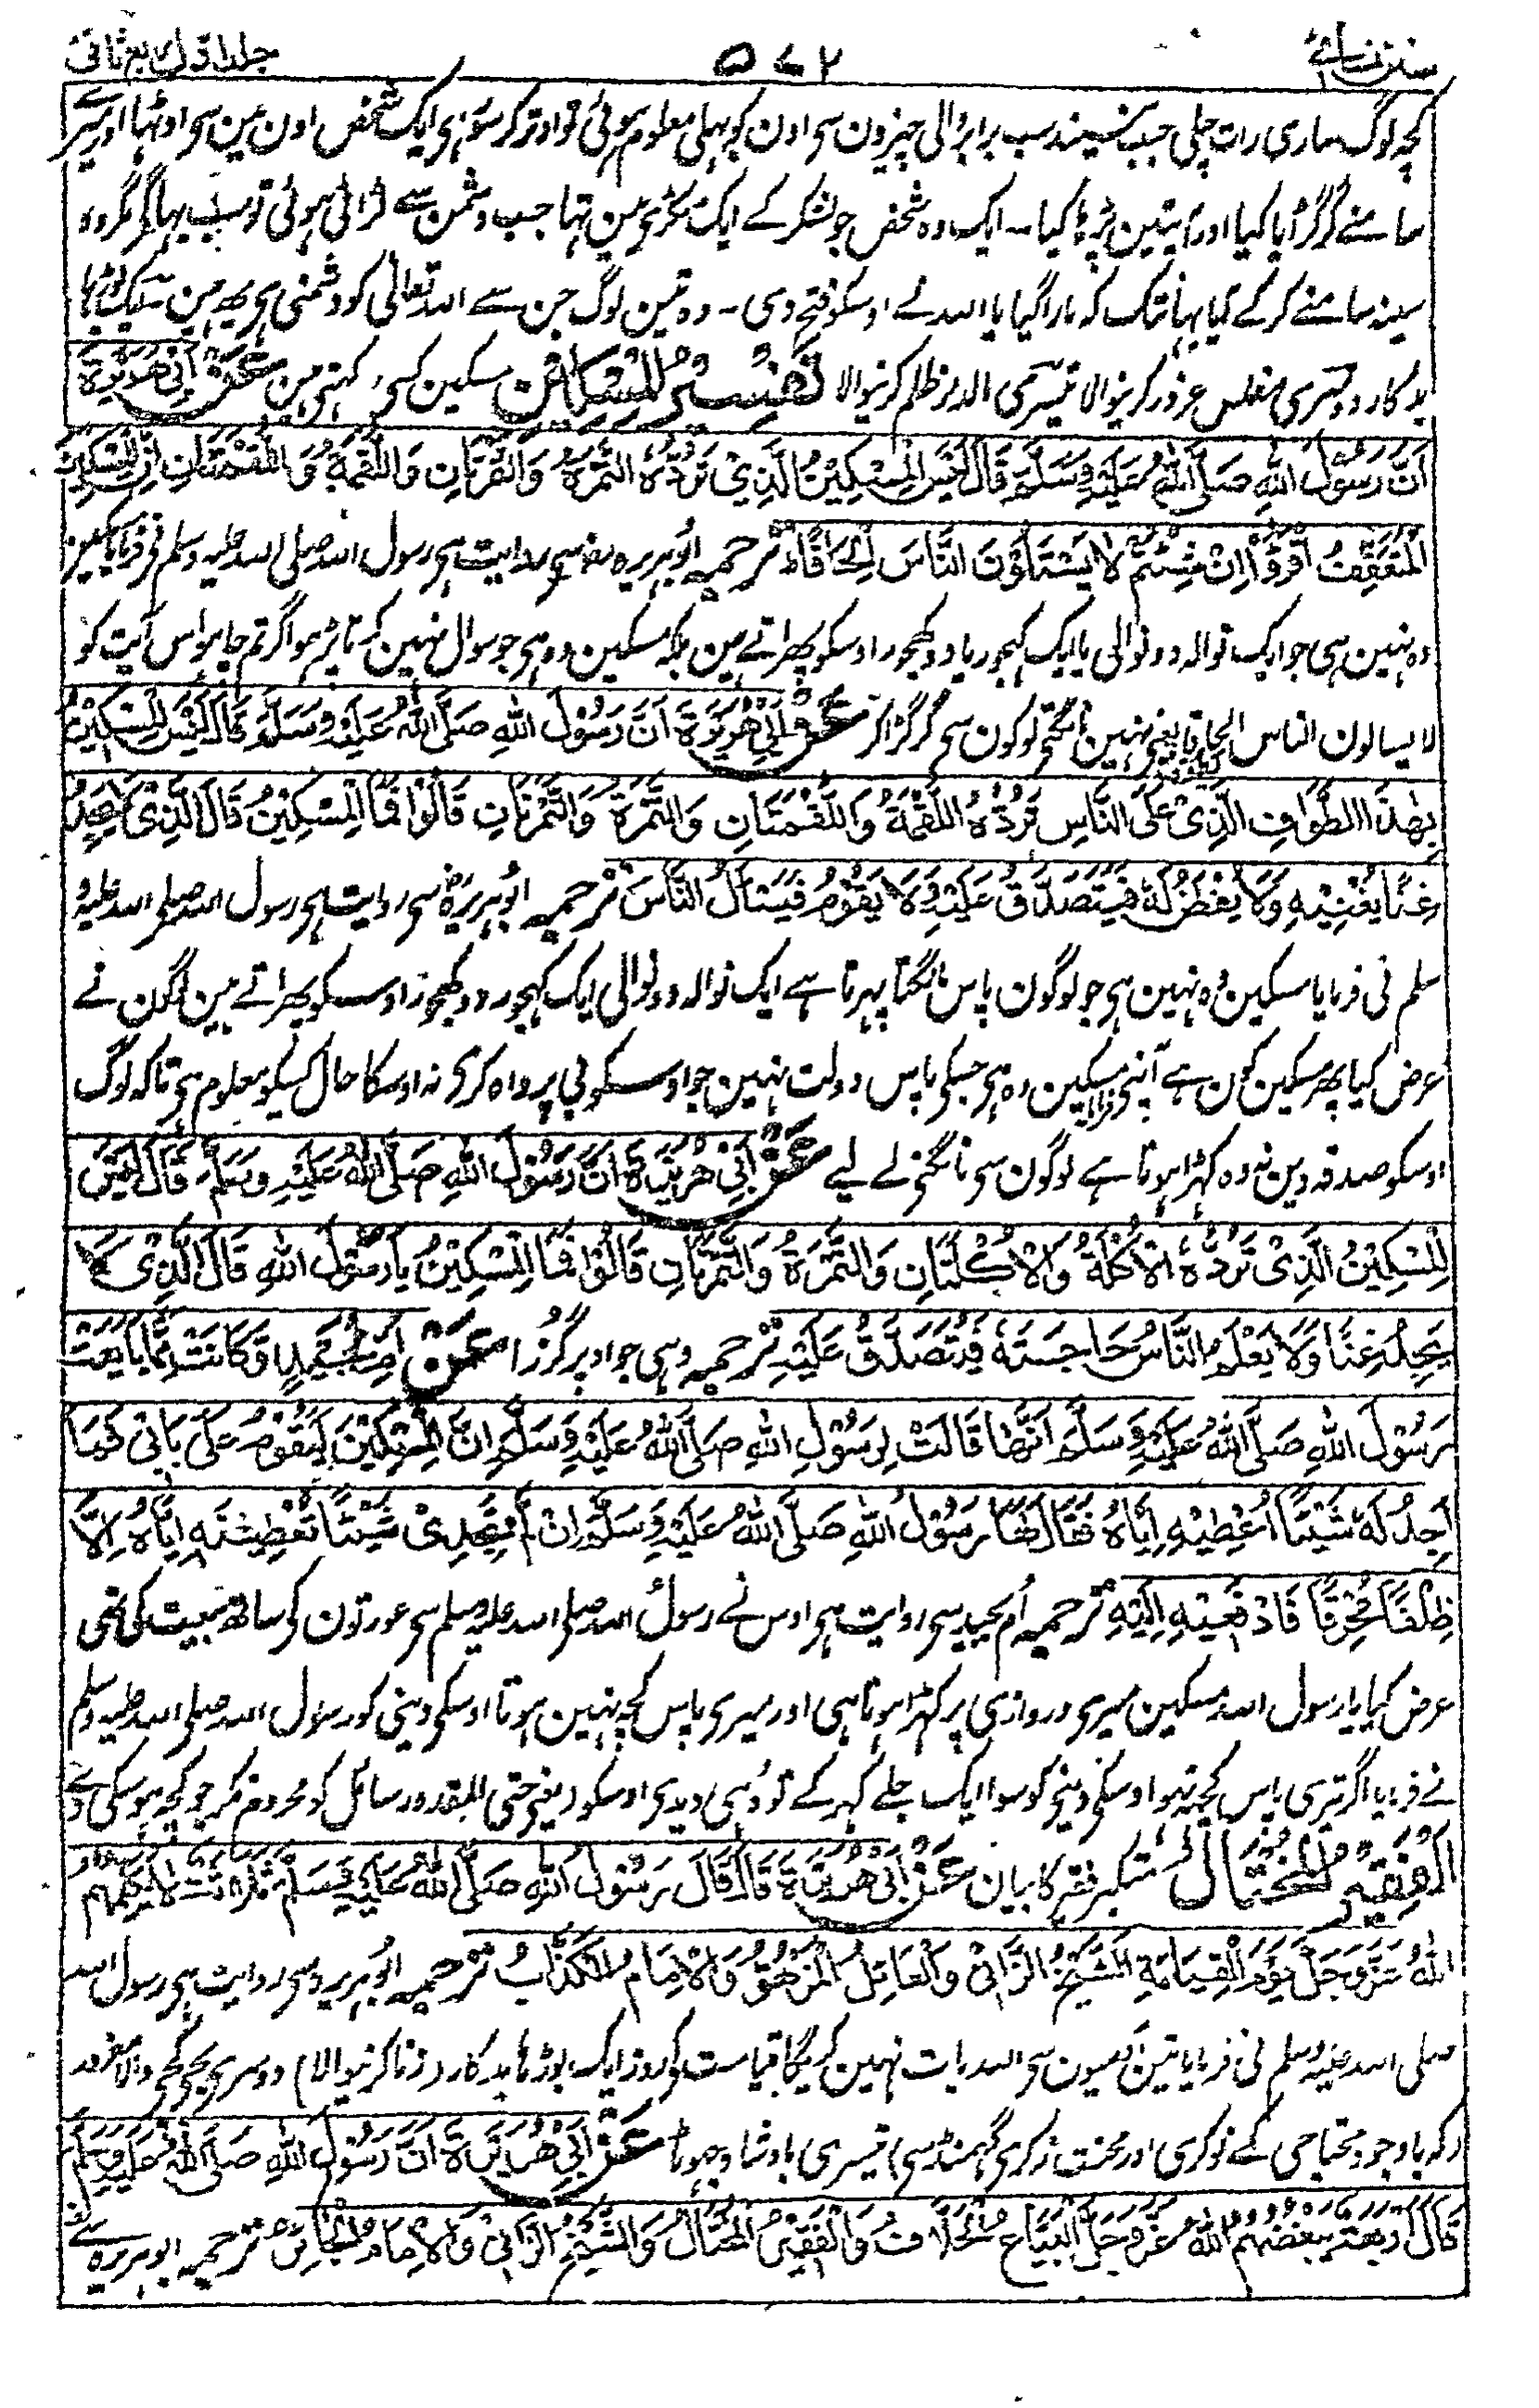 سنن نسائی ۵۷۲ جلد اول ربع ثانی
کچہ لوگ ساری رات چلی جب نیند سب برابر والی چیزون سی اون کو بہلی معلوم ہوئی تو اوتر کر سو رہی ایک شخص اون مین سی اوٹہا اور میرے
سامنے گڑگڑایا کیا اور آیتین پڑہا کیا ۔ ایک وہ شخص جو لشکر کے ایک ٹکڑی مین تہا جب دشمن سے لڑائی ہوئی تو سب بہاگے مگر وہ
سینہ سامنے کر کے گیا یہانتک کہ مارا گیا یا اللہ نے اوسکو فتح دی ۔ وہ تین لوگ جن سے اللہ تعالی کو دشمنی ہی یہ ہین ایک بوڑہا
بدکار دوسری مفلس غرور کرنیوالا تیسری مالدار ظلم کرنیوالا تَفْسِيْرُ الْمِسْكِيْنِ مسکین کسی کہتی ہین عَنْ اَبِيْ هُرَيْرَةَ
اَنَّ رَسُوْلَ اللهِ صَلَّى اللهُ عَلَيْهِ وَسَلَّمَ قَالَ لَيْسَ الْمِسْكِيْنُ الَّذِيْ تَرُدُّهُ التَّمْرَةُ وَالتَّمْرَتَانِ وَاللُّقْمَةُ وَاللُّقْمَتَانِ اِنَّ الْمِسْكِيْنَ
الْمُتَعَفِّفُ اقْرَؤُا اِنْ شِئْتُمْ لَا يَسْئَلُوْنَ النَّاسَ اِلْحَافًا ترجمہ ابوہریرہ سے روایت ہی رسول اللہ صلی اللہ علیہ وسلم نی فرمایا مسکین
وہ نہین ہی جو ایک نوالہ دو نوالی یا ایک کہجور یا دو کہجور اوسکو پھراتے ہین بلکہ مسکین وہ ہی جو سوال نہین کرتا پڑہو اگر تم چاہو اس آیت کو
لا یسالون الناس الحافا یعنی نہین مانگتی لوگون سی گڑگڑا کر عَنْ اَبِيْ هُرَيْرَةَ اَنَّ رَسُوْلَ اللهِ صَلَّى اللهُ عَلَيْهِ وَسَلَّمَ قَالَ لَيْسَ الْمِسْكِيْنُ
بِهٰذَا الطَّوَّافِ الَّذِيْ عَلَى النَّاسِ تَرُدُّهُ اللُّقْمَةُ وَاللُّقْمَتَانِ وَالتَّمْرَةُ وَالتَّمْرَتَانِ قَالُوْا فَمَا الْمِسْكِيْنُ قَالَ الَّذِيْ لَا يَجِدُ
غِنًا يُغْنِيْهِ وَلَا يُفْطَنُ لَهٗ فَيُتَصَدَّقَ عَلَيْهِ وَلَا يَقُوْمُ فَيَسْأَلُ النَّاسَ ترجمہ ابوہریرہ سی روایت ہی رسول اللہ صلی اللہ علیہ و
سلم نی فرمایا مسکین وہ نہین ہی جو لوگون پاس مانگتا پہرتا ہے ایک نوالہ دو نوالی ایک کہجور دو کہجور اوسکو پھراتے ہین لوگون نے
عرض کیا پھر مسکین کون ہے آپنی فرمایا مسکین وہ ہی جسکی پاس دولت نہین جو اوسکو بی پرواہ کری نہ اوسکا حال کسیکو معلوم ہی تاکہ لوگ
اوسکو صدقہ دین نہ وہ کہڑا ہوتا ہے لوگون سی مانگنی کے لیے عَنْ اَبِيْ هُرَيْرَةَ اَنَّ رَسُوْلَ اللهِ صَلَّى اللهُ عَلَيْهِ وَسَلَّمَ قَالَ لَيْسَ
الْمِسْكِيْنُ الَّذِيْ تَرُدُّهُ الْاُكْلَةُ وَالْاُكْلَتَانِ وَالتَّمْرَةُ وَالتَّمْرَتَانِ قَالُوْا فَمَا الْمِسْكِيْنُ يَا رَسُوْلَ اللهِ قَالَ الَّذِيْ لَا
يَجِدُ غِنًا وَلَا يَعْلَمُ النَّاسُ حَاجَتَهٗ فَيُتَصَدَّقَ عَلَيْهِ ترجمہ وہی جو اوپر گزرا عَنْ اُمِّ بُجَيْدٍ وَكَانَتْ مِمَّنْ بَايَعَتْ
رَسُوْلَ اللهِ صَلَّى اللهُ عَلَيْهِ وَسَلَّمَ اَنَّهَا قَالَتْ لِرَسُوْلِ اللهِ صَلَّى اللهُ عَلَيْهِ وَسَلَّمَ اِنَّ الْمِسْكِيْنَ لَيَقُوْمُ عَلٰى بَابِيْ فَمَا
اَجِدُ لَهٗ شَيْئًا اُعْطِيْهِ اِيَّاهُ فَقَالَ لَهَا رَسُوْلُ اللهِ صَلَّى اللهُ عَلَيْهِ وَسَلَّمَ اِنْ لَمْ تَجِدِيْ شَيْئًا تُعْطِيْنَهٗ اِيَّاهُ اِلَّا
ظِلْفًا مُحْرَقًا فَادْفَعِيْهِ اِلَيْهِ ترجمہ ام بجید سی روایت ہی اوس نے رسول اللہ صلی اللہ علیہ وسلم سی عورتون کی ساتھ بیعت کی تھی
عرض کیا یا رسول اللہ مسکین میری دروازی پر کہڑا ہوتا ہی اور میری پاس کچہ نہین ہوتا اوسکی دینی کو رسول اللہ صلی اللہ علیہ وسلم
نے فرمایا اگر تیری پاس کچہ نہو اوسکی دینی کو سوا ایک جلے کہر کے تو وہی دیدی اوسکو (یعنی حتی المقدور سائل کو محروم نکر جو کچہ ہو سکی دے
اَلْفَقِيْرُ الْمُخْتَالُ متکبر فقیر کا بیان عَنْ اَبِيْ هُرَيْرَةَ قَالَ قَالَ رَسُوْلُ اللهِ صَلَّى اللهُ عَلَيْهِ وَسَلَّمَ ثَلٰثَةٌ لَا يُكَلِّمُهُمُ
اللهُ عَزَّ وَجَلَّ يَوْمَ الْقِيَامَةِ الشَّيْخُ الزَّانِيْ وَالْعَائِلُ الْمَزْهُوُّ وَالْاِمَامُ الْكَذَّابُ ترجمہ ابوہریرہ سی روایت ہی رسول اللہ
صلی اللہ علیہ وسلم نی فرمایا تین آدمیون سی اللہ بات نہین کریگا قیامت کی روز ایک بوڑہا بدکار (زنا کرنیوالا) دوسری مغرور
(کہ باوجود محتاجی کے نوکری اور محنت نکری گہمنڈ سی) تیسری بادشاہ جہوٹا عَنْ اَبِيْ هُرَيْرَةَ اَنَّ رَسُوْلَ اللهِ صَلَّى اللهُ عَلَيْهِ وَسَلَّمَ
قَالَ اَرْبَعَةٌ يُبْغِضُهُمُ اللهُ عَزَّ وَجَلَّ الْبَيَّاعُ الْحَلَّافُ وَالْفَقِيْرُ الْمُخْتَالُ وَالشَّيْخُ الزَّانِيْ وَالْاِمَامُ الْجَائِرُ ترجمہ ابوہریرہ سے